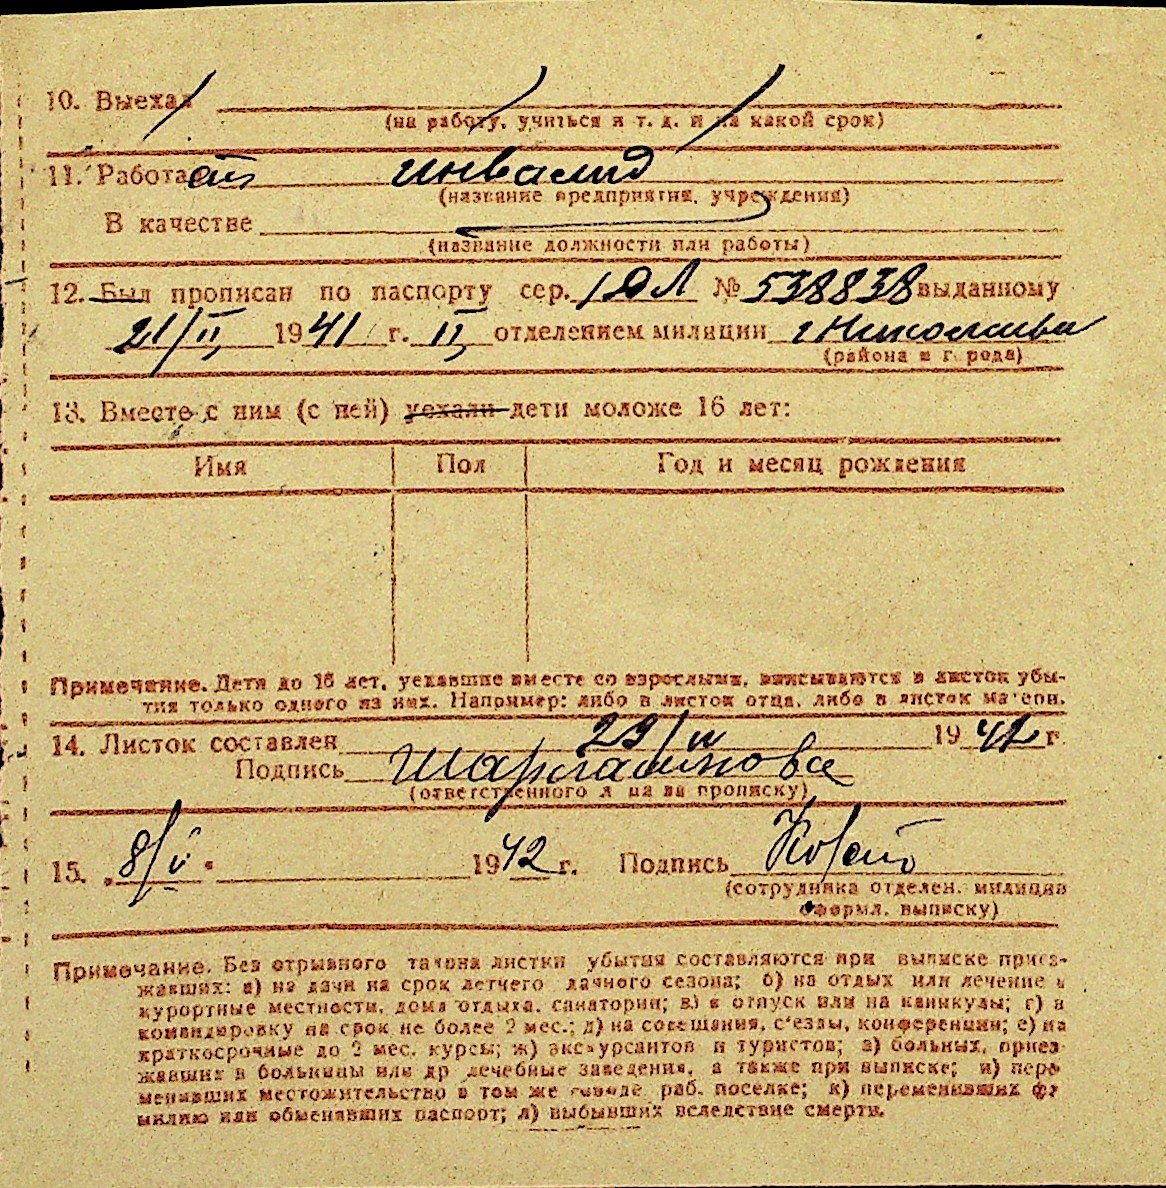 10. Выехал
(на работу, учиться и т. д. и на какой срок)
11. Работает инвалид
(название предприятия, учреждения)
В качестве
(название должности или работы)
12. Был прописан по паспорту сер. № 538838 выданному
21/II 1941 г. II отделением милиции г Николаева
(района и города)
13. Вместе с ним (с ней) уехали дети моложе 16 лет:
Имя Пол Год и месяц рождения
Примечание. Дети до 16 лет, уехавшие вместе со взрослыми, вписываются в листок убы-
тия только одного из них. Например: либо в листок отца, либо в листок матери.
14. Листок составлен 29/IV 1942 г
Подпись
(ответственного лица за прописку)
15. 8/V 1942 г. Подпись
(сотрудника отделен. милиции
оформл. выписку)
Примечание. Без отрывного талона листки убытия составляются при выписке приез-
жавших: а) на дачи на срок летнего дачного сезона; б) на отдых или лечение в
курортные местности, дома отдыха, санатории; в) в отпуск или на каникулы; г) в
командировку на срок не более 2 мес.; д) на совещания, с'езды, конференции; е) на
краткосрочные до 2 мес. курсы; ж) экскурсантов и туристов; з) больных, приез-
жавших в больницы или др лечебные заведения, а также при выписке; и) пере
менивших местожительство в том же городе раб. поселке; к) переменивших фа
милию или обменявших паспорт; л) выбывших вследствие смерти.